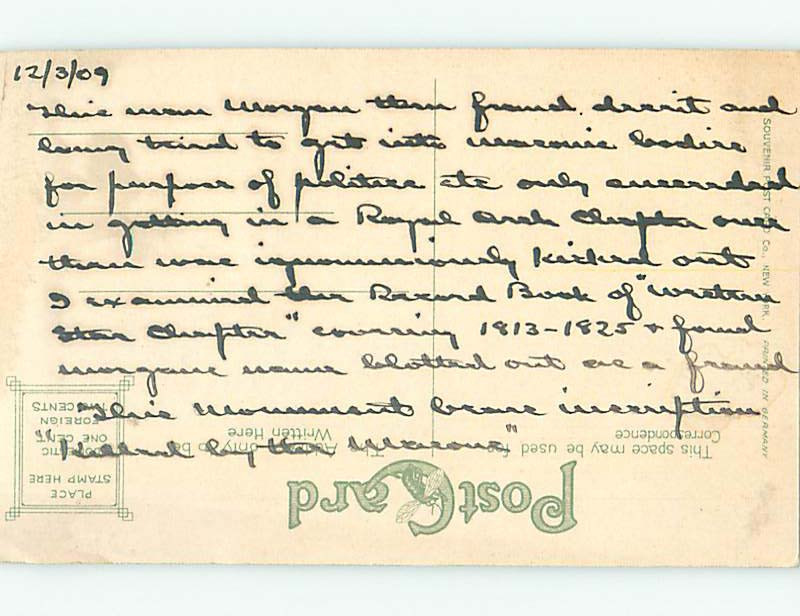 12/3/09
This man Morgan thru fraud, deceit and
lying tried to get into masonic bodies
for purpose of politics etc only succeeded
in getting in a Royal Arch Chapter over
there was ignominiously kicked out
I examined the Record Book of "Western
Star Chapter" covering 1813-1825 + found
Morgans name blotted out as a fraud
This Monument bears inscription
"Killed by the Masons"
SOUVENIR POST CARD CO., NEW YORK. PRINTED IN GERMANY
This space may be used for
Correspondence
The Address only to be
Written Here
PLACE
STAMP HERE
DOMESTIC
ONE CENT
FOREIGN
TWO CENTS
PostCard